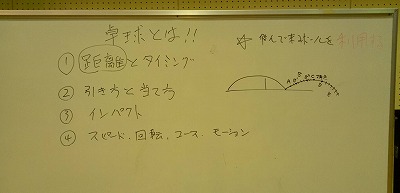 卓球とは!!
① 距離とタイミング
② 引き方と当て方
③ インパクト
④ スピード、回転、コース、モーション
☆ 飛んで来るボールを利用する